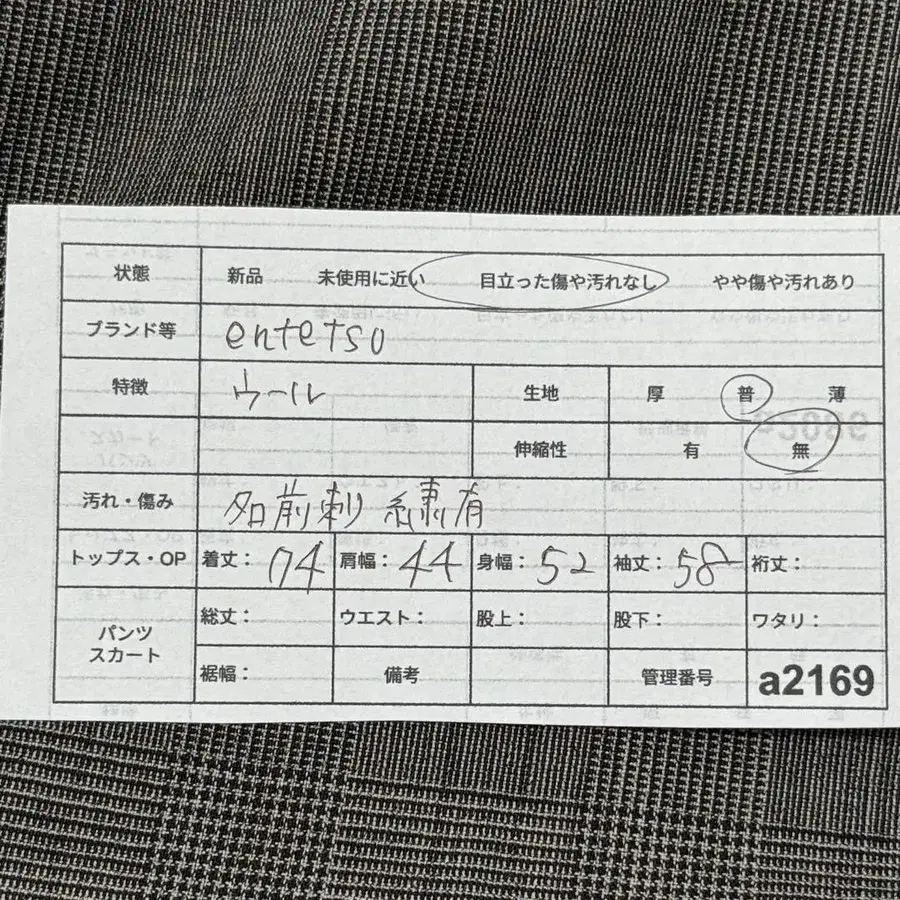 状態 新品 未使用に近い 目立った傷や汚れなし やや傷や汚れあり
ブランド等 entetsu
特徴 ウール 生地 厚 普 薄
伸縮性 有 無
汚れ・傷み 名前刺繍有
トップス・OP 着丈: 74 肩幅: 44 身幅: 52 袖丈: 58 裄丈:
パンツ スカート 総丈: ウエスト: 股上: 股下: ワタリ:
裾幅: 備考 管理番号 a2169